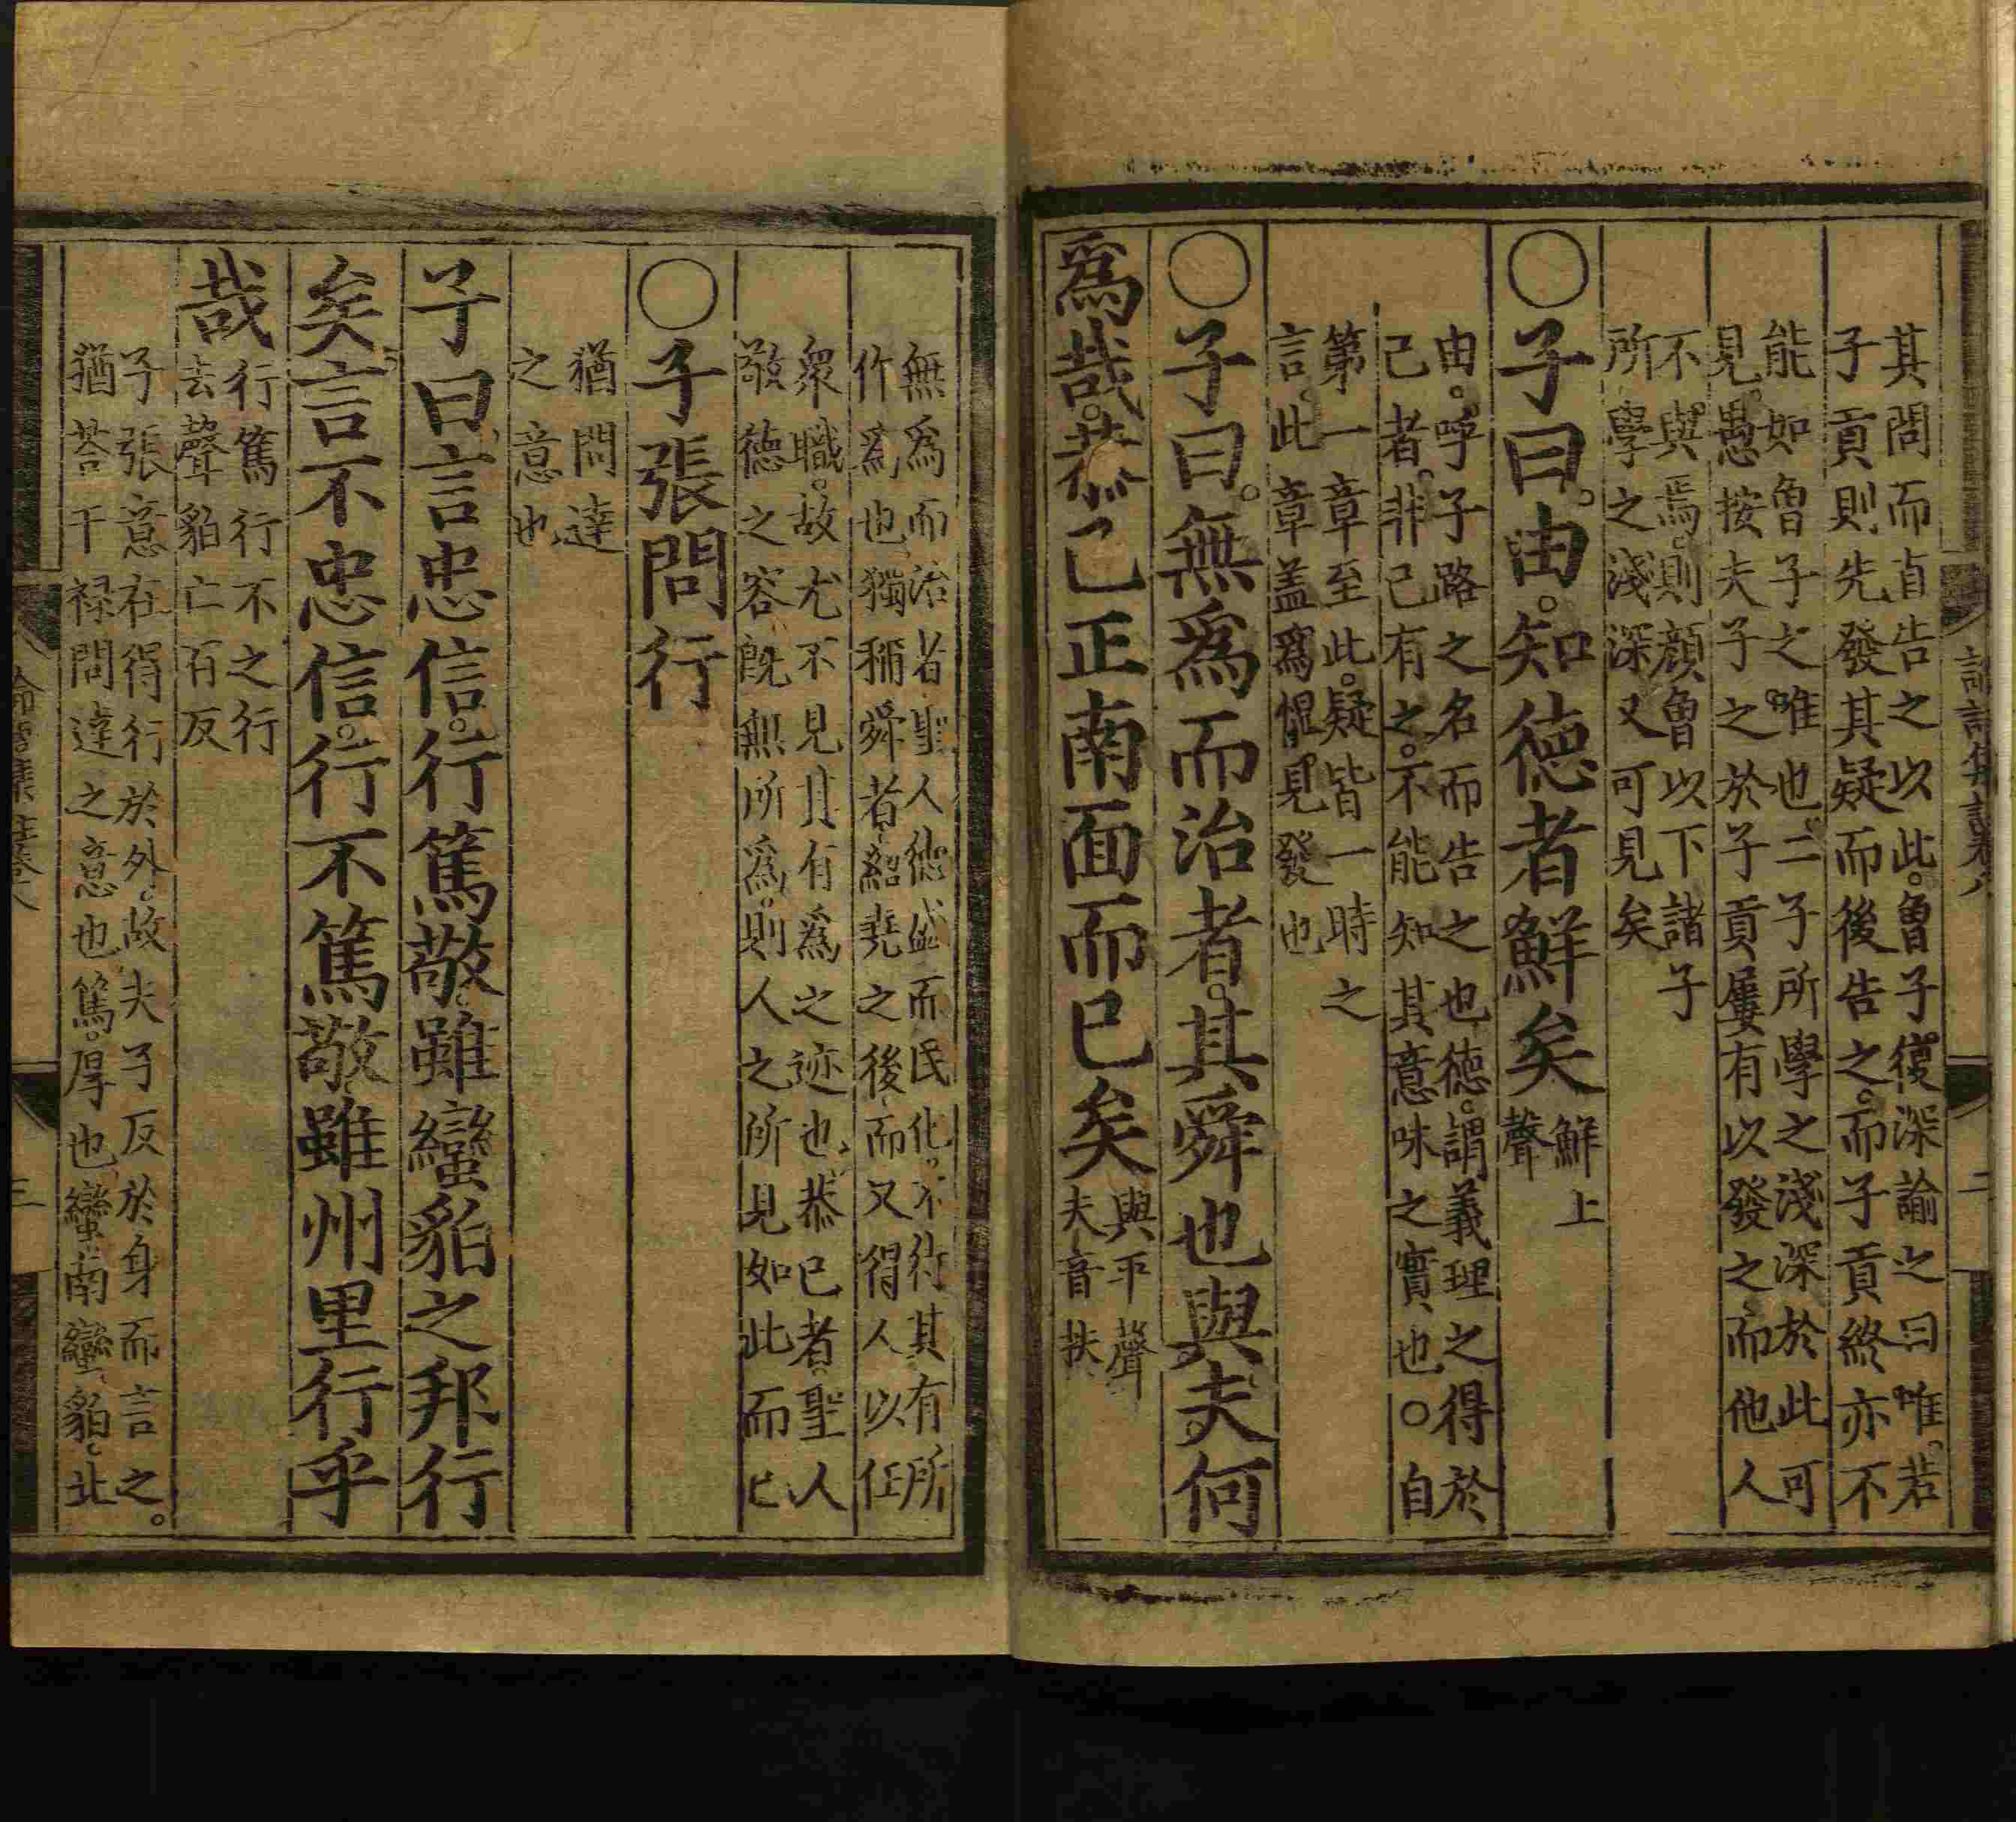 其問而直告之以此。魯子復深諭之曰唯。若
子貢則先發其疑而後告之。而子貢終亦不
能如魯子之唯也。二子所學之淺深於此可
見。愚按夫子之於子貢屢有以發之而他人
不與焉。則顔魯以下諸子
所學之淺深又可見矣
○子曰。由。知德者鮮矣
鮮上
聲
由。呼子路之名而告之也德。謂義理之得於
己者。非己有之。不能知其意味之實也。○自
第一章至此。疑皆一時之
言。此章盖爲慍見發也
○子曰。無爲而治者。其舜也與夫何
爲哉。恭己正南面而已矣
與平聲
夫音扶
無爲而治者聖人德盛而民化。不待其有所
作爲也獨稱舜者紹堯之後而又得人以任
衆職。故尤不見其有爲之迹也恭己者。聖人
敬德之容既無所爲。則人之所見如此而已
○子張問行
猶問達
之意也
子曰言忠信。行篤敬。雖蠻貊之邦行
矣言不忠信。行不篤敬雖州里行乎
哉
行篤行不之行
去聲貊亡百反
子張意在得行於外。故夫子反於身而言之。
猶荅干祿問達之意也篤。厚也蠻南蠻貊。北
三